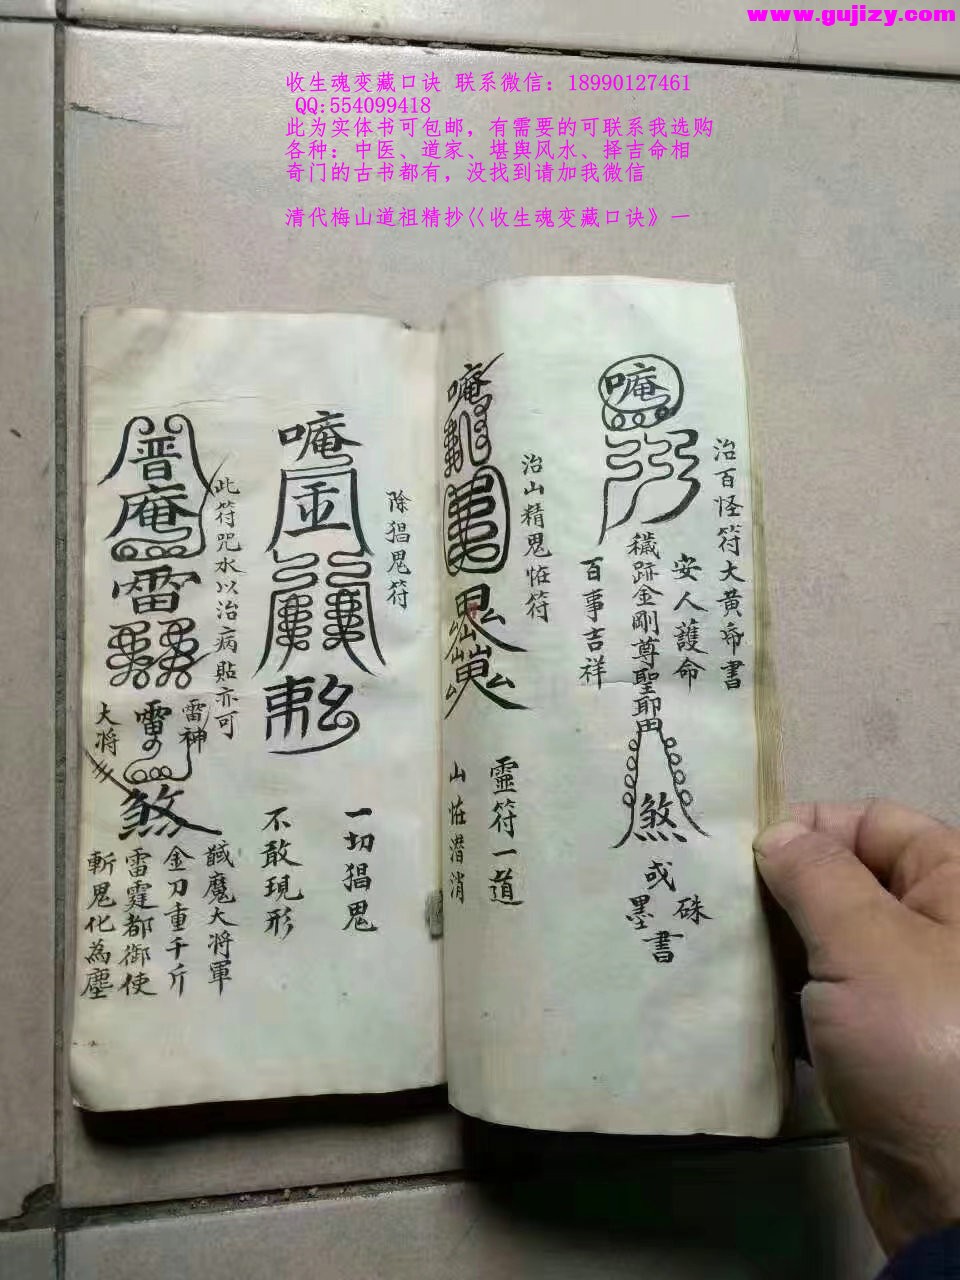 www.gujizy.com
收生魂变藏口诀 联系微信：18990127461
QQ:554099418
此为实体书可包邮，有需要的可联系我选购
各种：中医、道家、堪舆风水、择吉命相
奇门的古书都有，没找到请加我微信
清代梅山道祖精抄《收生魂变藏口诀》一
治百怪符大黄帋書
唵
安人護命
穢跡金剛尊聖
煞
百事吉祥
或
硃
墨
書
治山精鬼恠符
唵
靈符一道
山恠潜消
除猖鬼符
唵
金
一切猖鬼
不敢現形
此符咒水以治病貼亦可
普
庵
雷
雷神
雷
大将
煞
馘魔大将軍
金刀重千斤
雷霆都御使
斬鬼化為塵